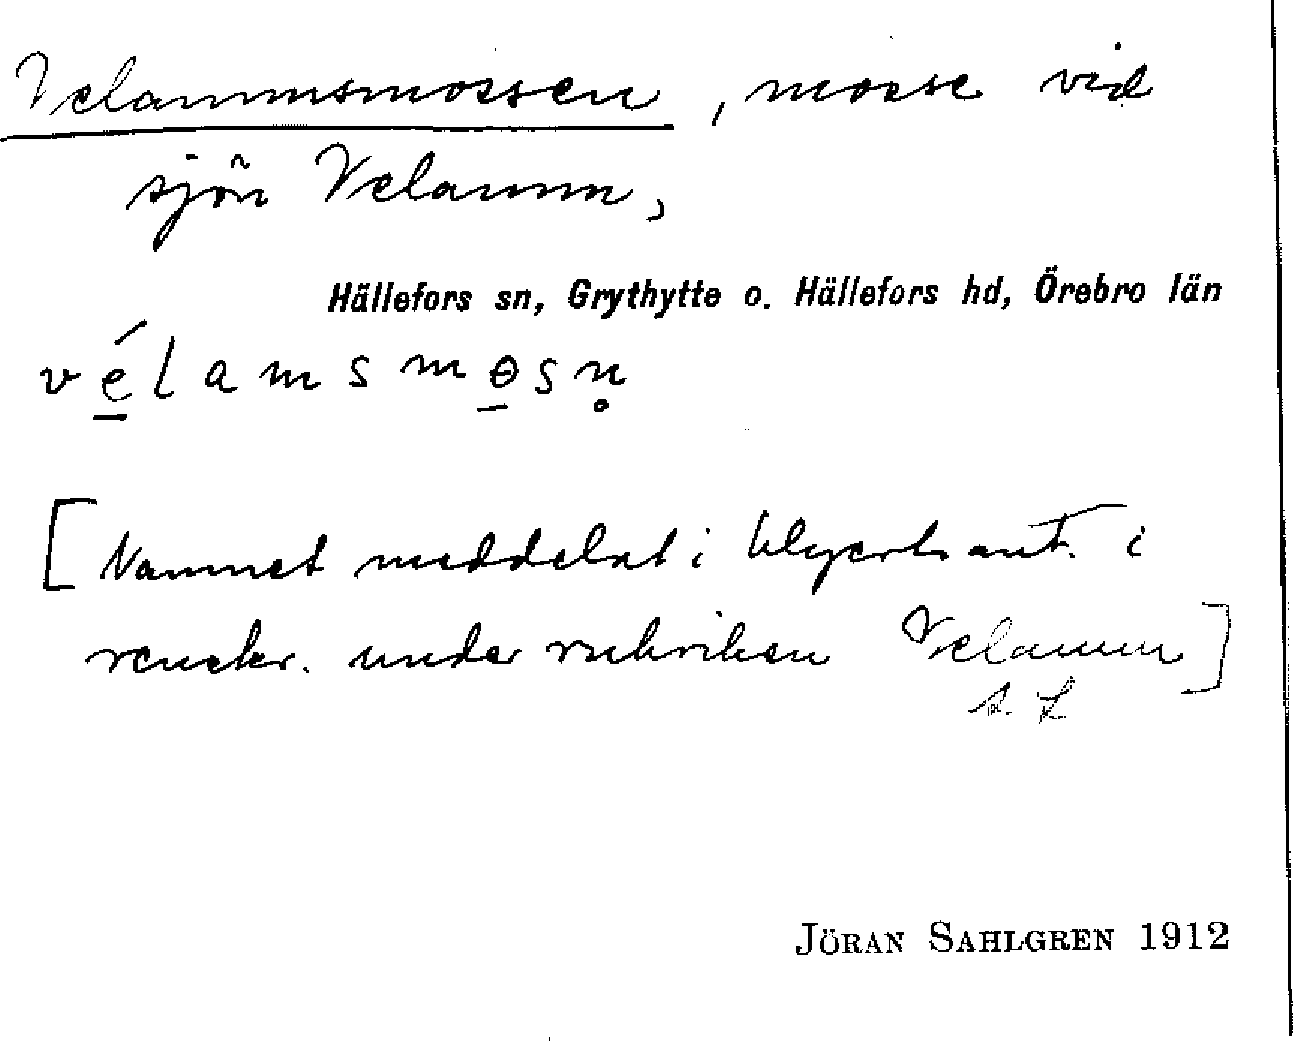 Velammsmossen, mosse vid
sjön Velamm,
Hällefors sn, Grythytte o. Hällefors hd, Örebro län
vélamsmɵsn̥
[Namnet meddelat i blyertsant. i
renskr. under rubriken Velamm]
s. L
JÖRAN SAHLGREN 1912